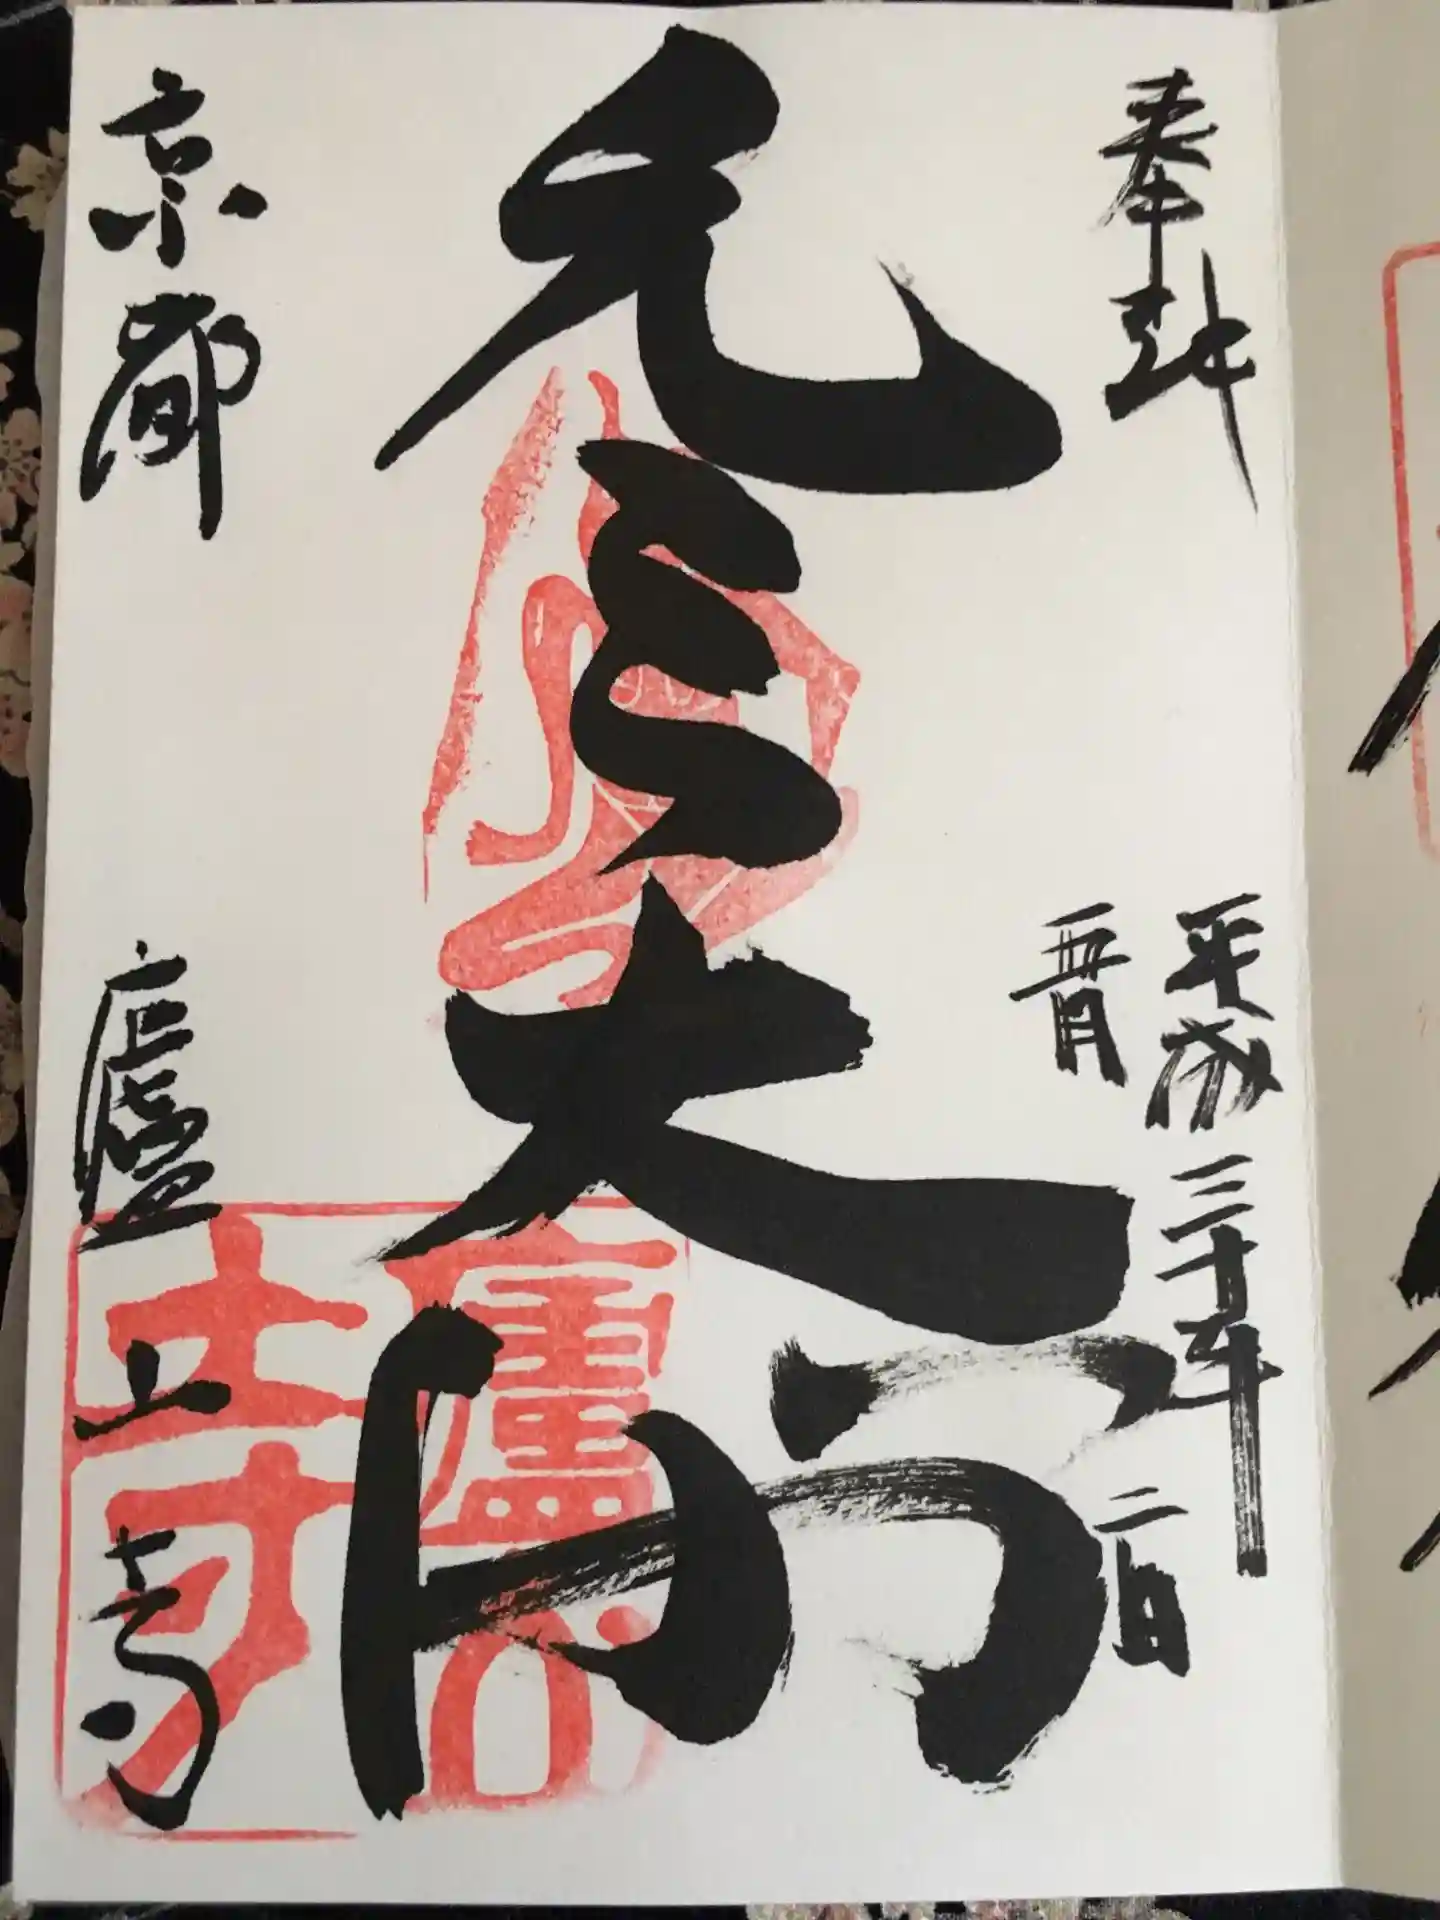 奉拝
平成三十年
五月
二日
元三大師
京都
廬山寺
廬山寺